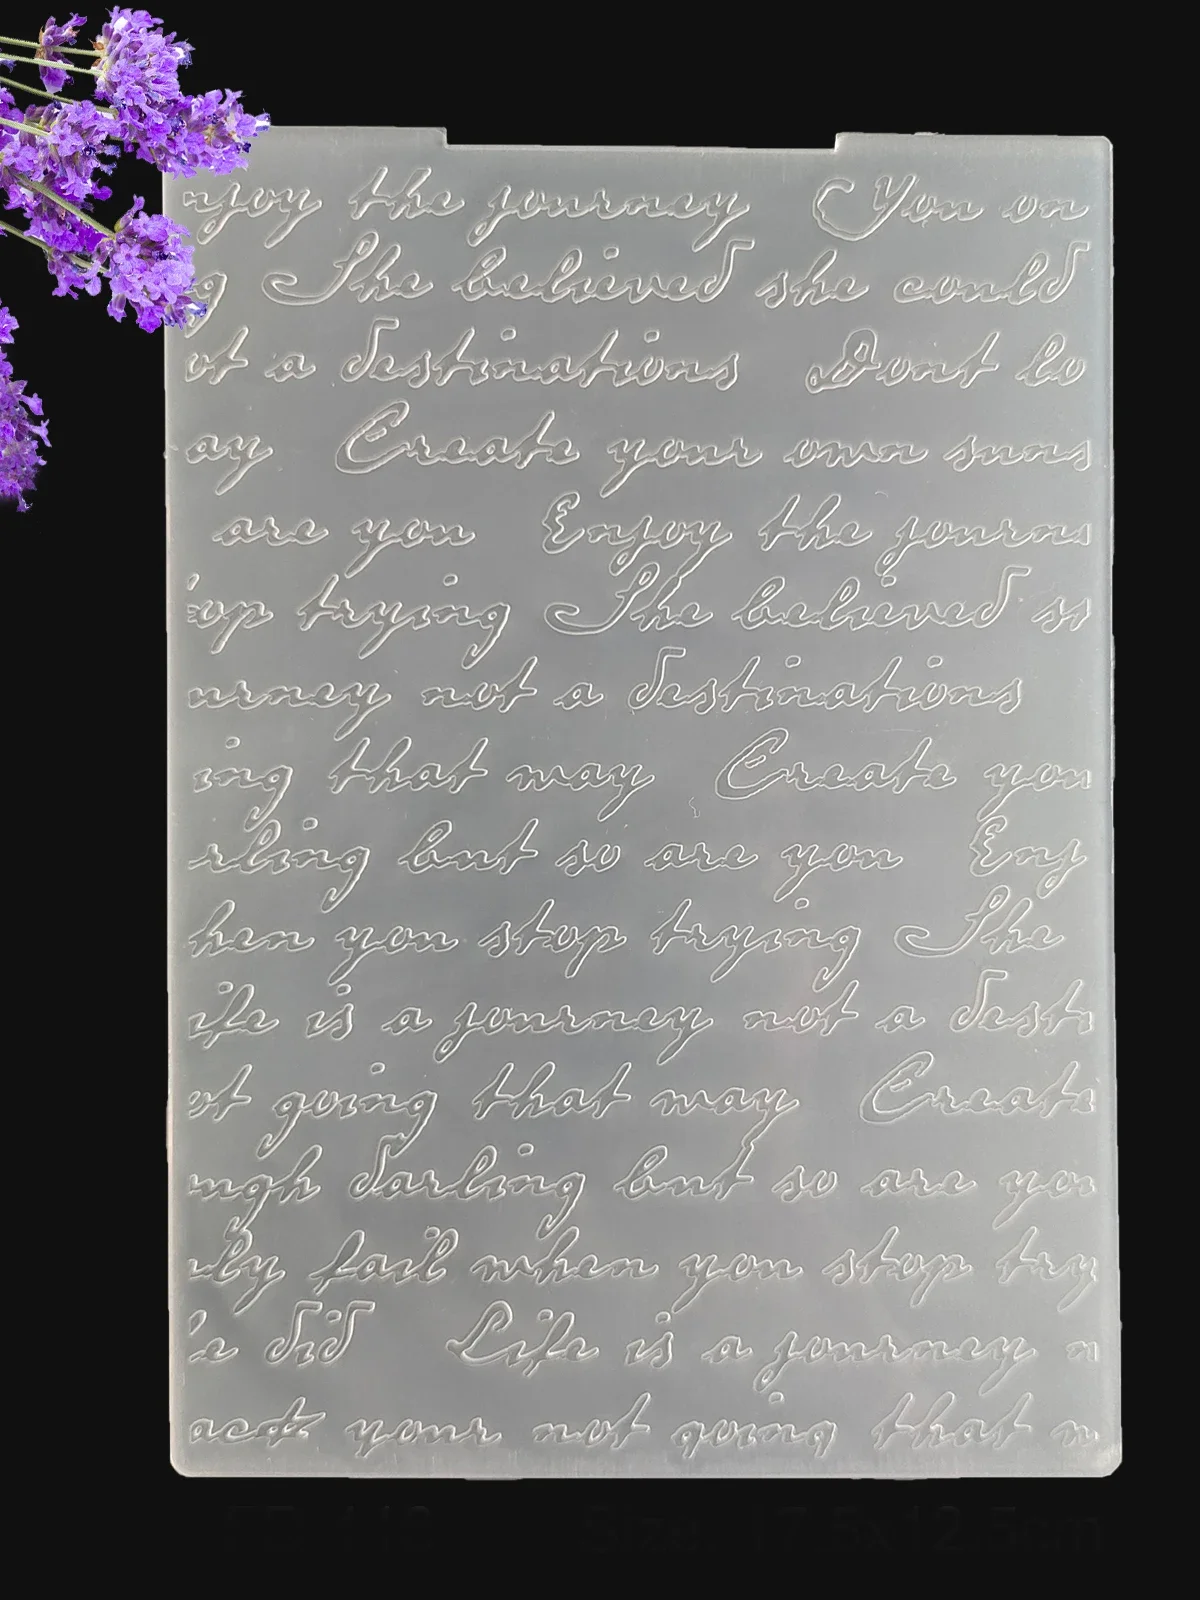 njoy the journey You on
g She believed she could
ot a destinations Dont lo
ay Create your own suns
are you Enjoy the journe
op trying She believed s
urney not a destinations
ing that may Create you
rling but so are you Enj
hen you stop trying She
ife is a journey not a desti
ot going that may Create
ugh darling but so are you
nly fail when you stop try
e did Life is a journey n
back your not going that m
Size: 17.5x12.5cm